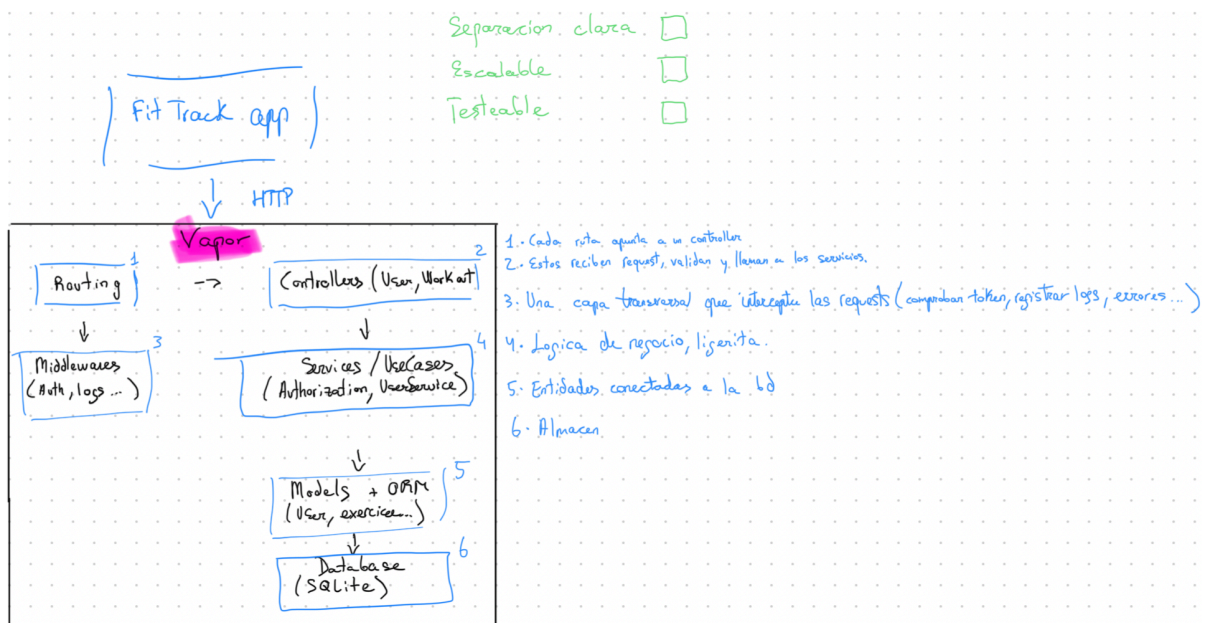 Separacion clara
Escalable
Testeable
Fit Track app
HTTP
Vapor
1
Routing
->
2
Controllers (User, Workout)
3
Middlewares
(Auth, logs ...)
4
Services / UseCases
(Authorization, UserService)
5
Models + ORM
(User, exercice...)
6
Database
(SQLite)
1.- Cada ruta apunta a un controller
2.- Estos reciben request, validan y llaman a los servicios.
3. Una capa transversal que intercepta las requests (comprobar token, registrar logs, errores ...)
4.- Logica de negocio, ligerita.
5.- Entidades conectadas a la bd
6.- Almacen